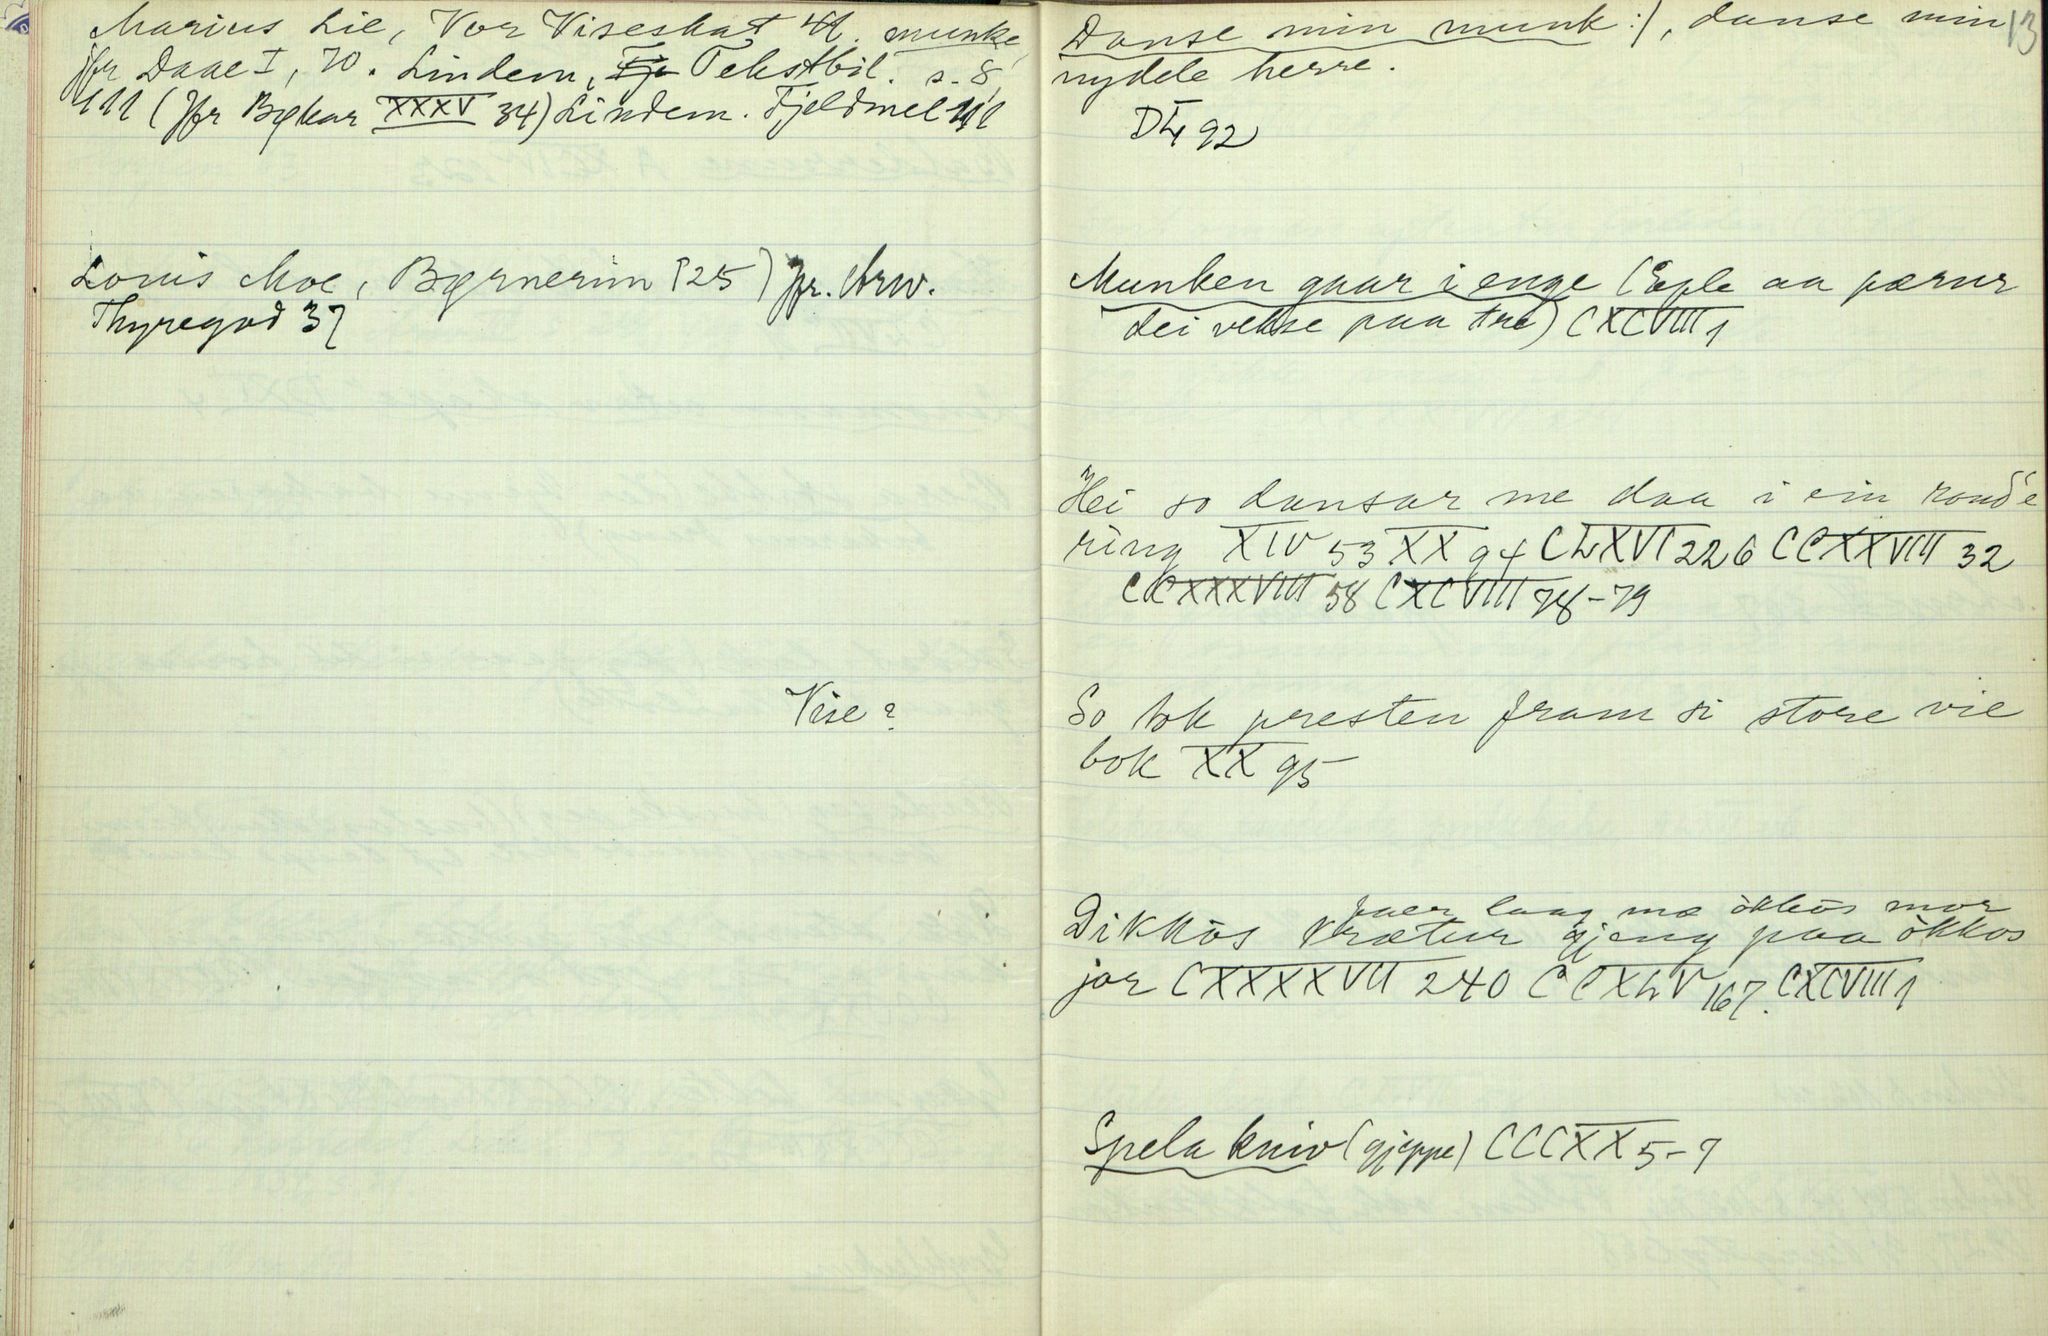 Marius Lie, Vor Viseskat 41. munke,
jfr Daae I, 70. Lindem, Tekstbil. s. 8,
111 (Jfr Bøkar XXXV 34) Lindem. Fjeldmel 111
Louis Moe, Børnerim [25] Jfr. Arw.
Thyregod 37
Vise?
13
Danse min munk :/, danse min
nydele herre.
DL 92
Munken gaar i enge (Eple aa pærur
dei vekse paa tre) CXCVIII 1
Hei so dansar me daa i ein rond'e
ring XIV 53 XX 94 CLXVI 226 CCXXVIII 32
CCXXXVIII 58 CXCVIII 78-79
So tok presten fram si store vie
bok XX 95
laag mæ økkøs mor
Dikkøs Krætur gjeng paa økkøs
jor CXXXXVII 240 CCXLV 167. CXCVIII 1
Spela kniv (gjeppe) CCCXX 5-7